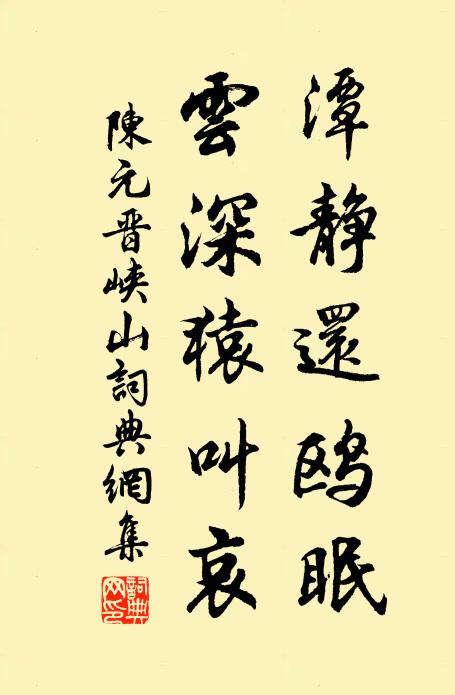 潭静還鸥眠
雲深猿叫哀
陳元晋峽山詞典網集
詞典网印